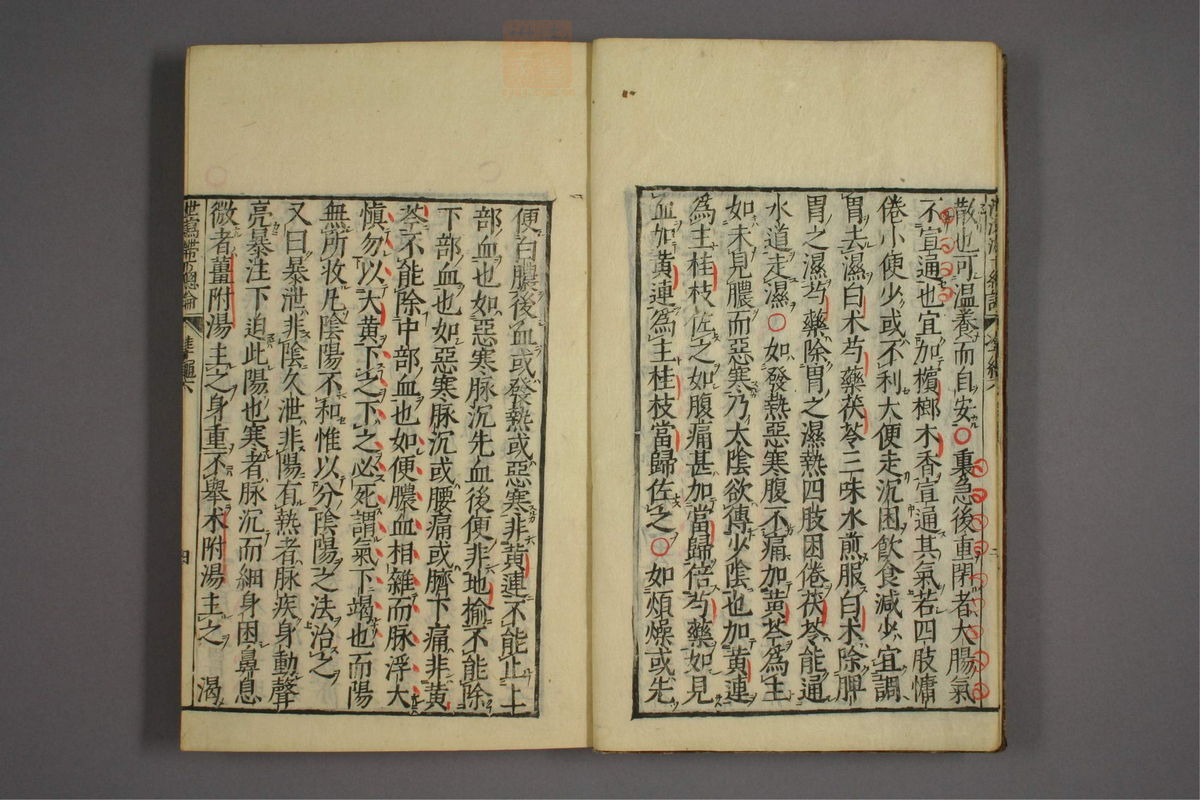 散也可温養而自安○裏急後重閉者大腸氣
不宣通也宜加檳榔木香宣通其氣若四肢慵
倦小便少或不利大便走沉困飲食減少宜調
胃去濕白术芍藥茯苓三味水煎服白术除脾
胃之濕芍藥除胃之濕熱四肢困倦茯苓能通
水道走濕○如發熱惡寒腹不痛加黄芩為主
如未見膿而惡寒乃太陰欲傳少陰也加黄連
為主桂枝佐之如腹痛甚加當歸倍芍藥如見
血如黄連為主桂枝當歸佐之○如煩燥或先
便白膿後血或發熱或惡寒非黄連不能止上
部血也如惡寒脉沉先血後便非地榆不能除
下部血也如惡寒脉沉或腰痛或臍下痛非黄
芩不能除中部血也如便膿血相雜而脉浮大
慎勿以大黄下之下之必死謂氣下竭也而陽
無所收凡陰陽不和惟以分陰陽之法治之
又曰暴泄非陰久泄非陽有熱者脉疾身動聲
亮暴注下迫此陽也寒者脉沉而細身困鼻息
微者薑附湯主之身重不舉术附湯主之 渴
四